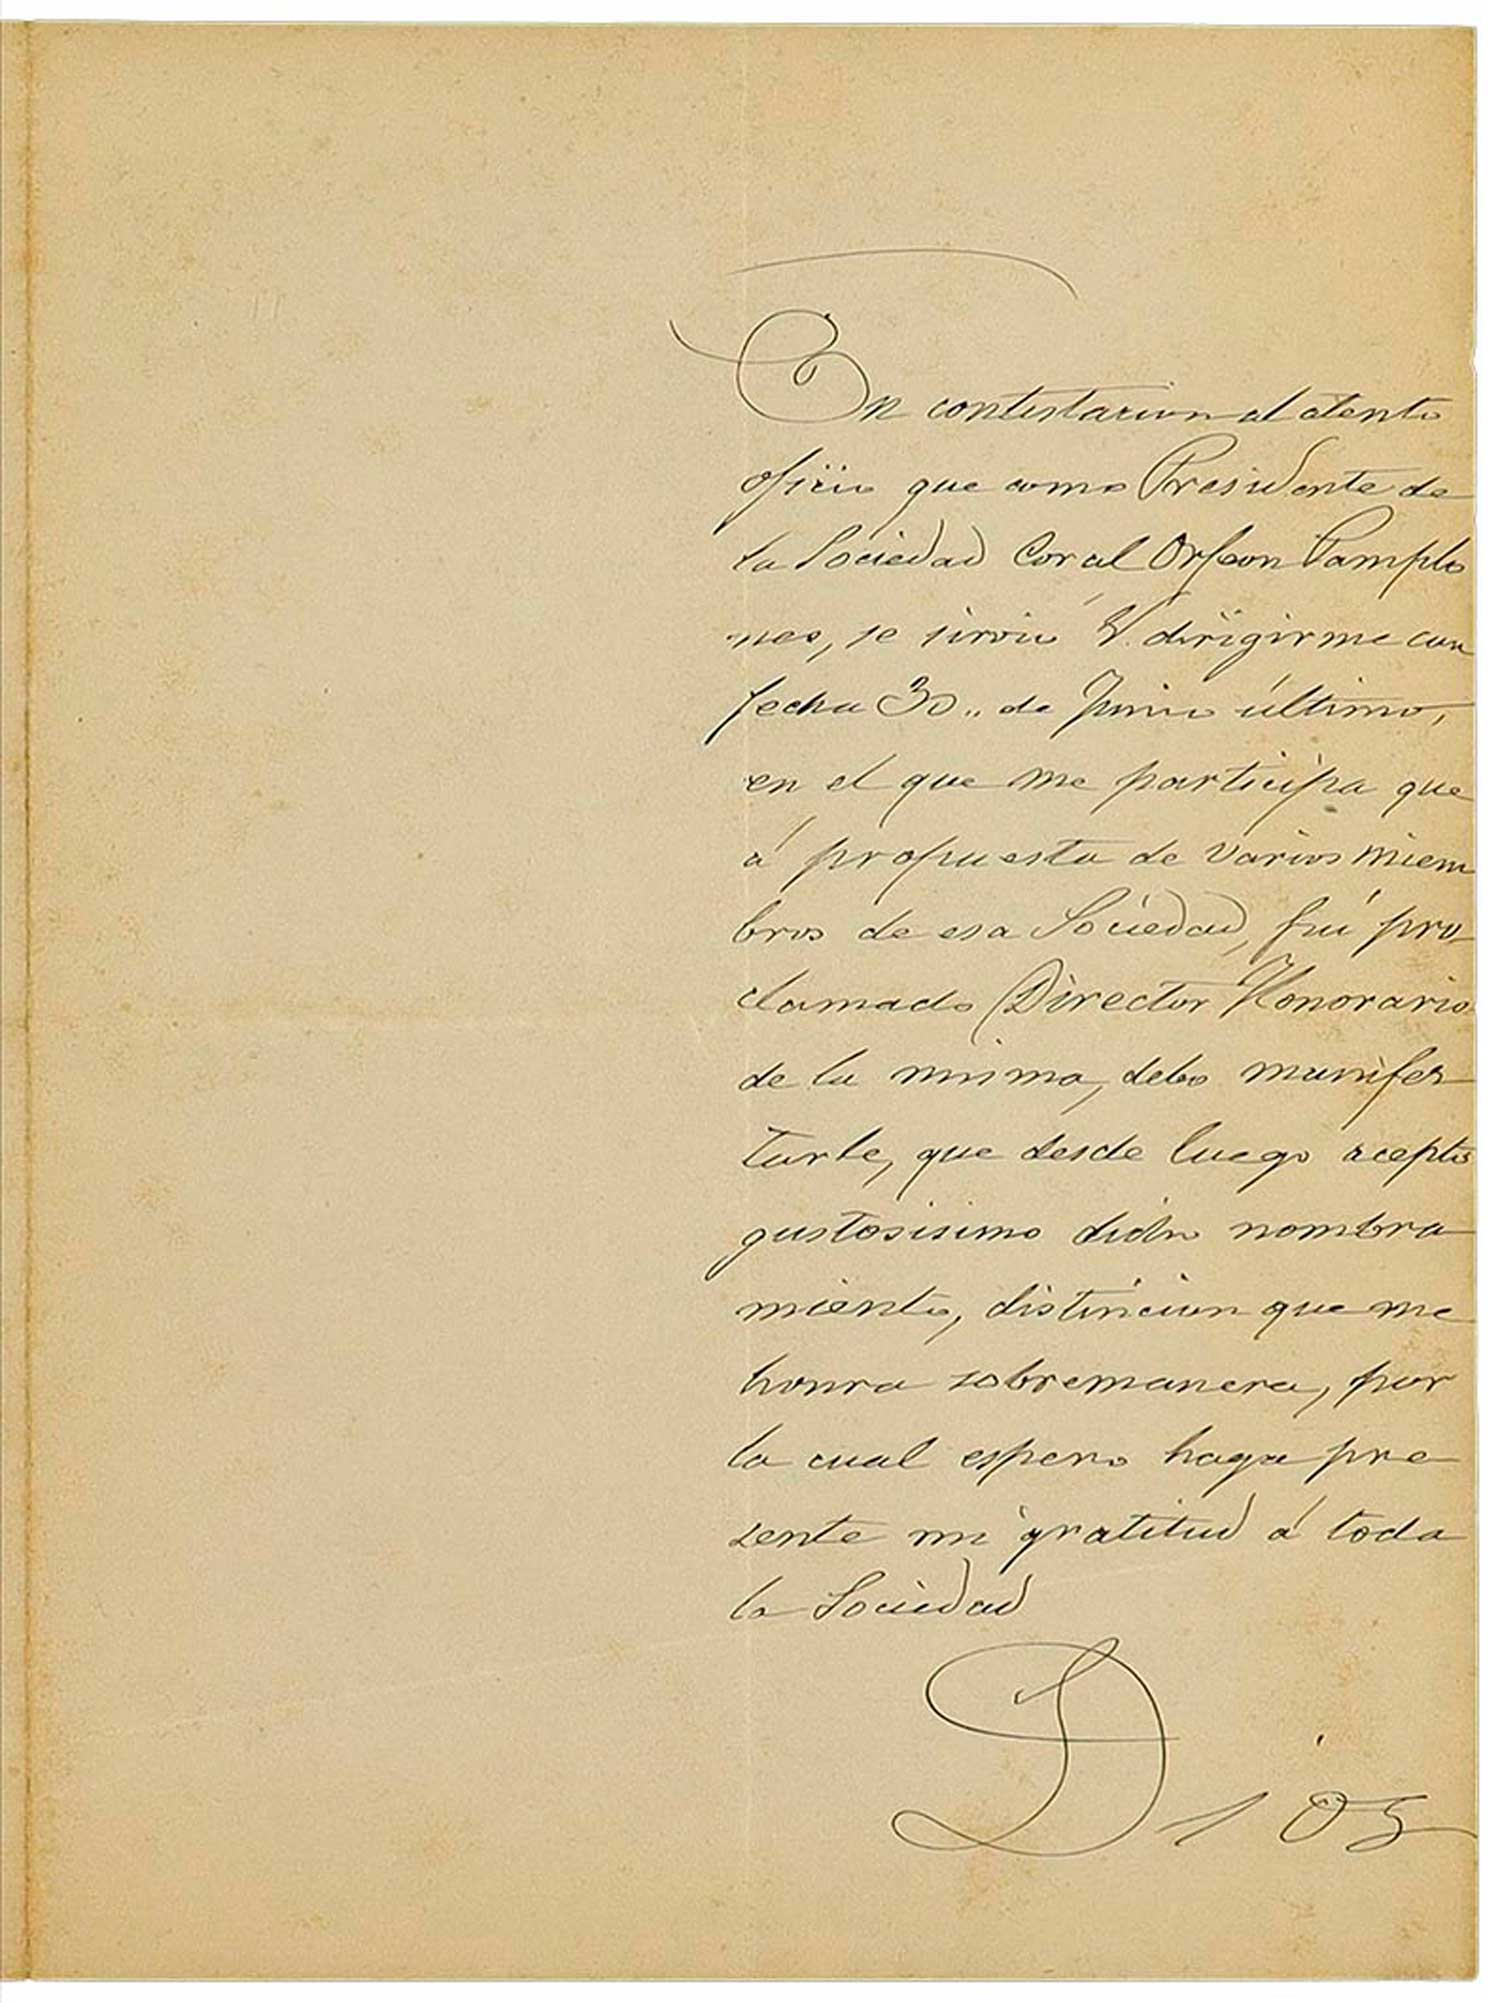 En contestacion al atento
oficio que como Presidente de
la Sociedad Coral Orfeon Pamplo
nes, se sirvió V. dirigirme con
fecha 30.. de Junio último,
en el que me participa que
á propuesta de varios miem
bros de esa Sociedad, fuí pro
clamado Director Honorario
de la misma, debo manifes
tarle, que desde luego acepto
gustosisimo dicho nombra
miento, distincion que me
honra sobremanera, por
lo cual espero haga pre
sente mi gratitud á toda
la Sociedad
Dios